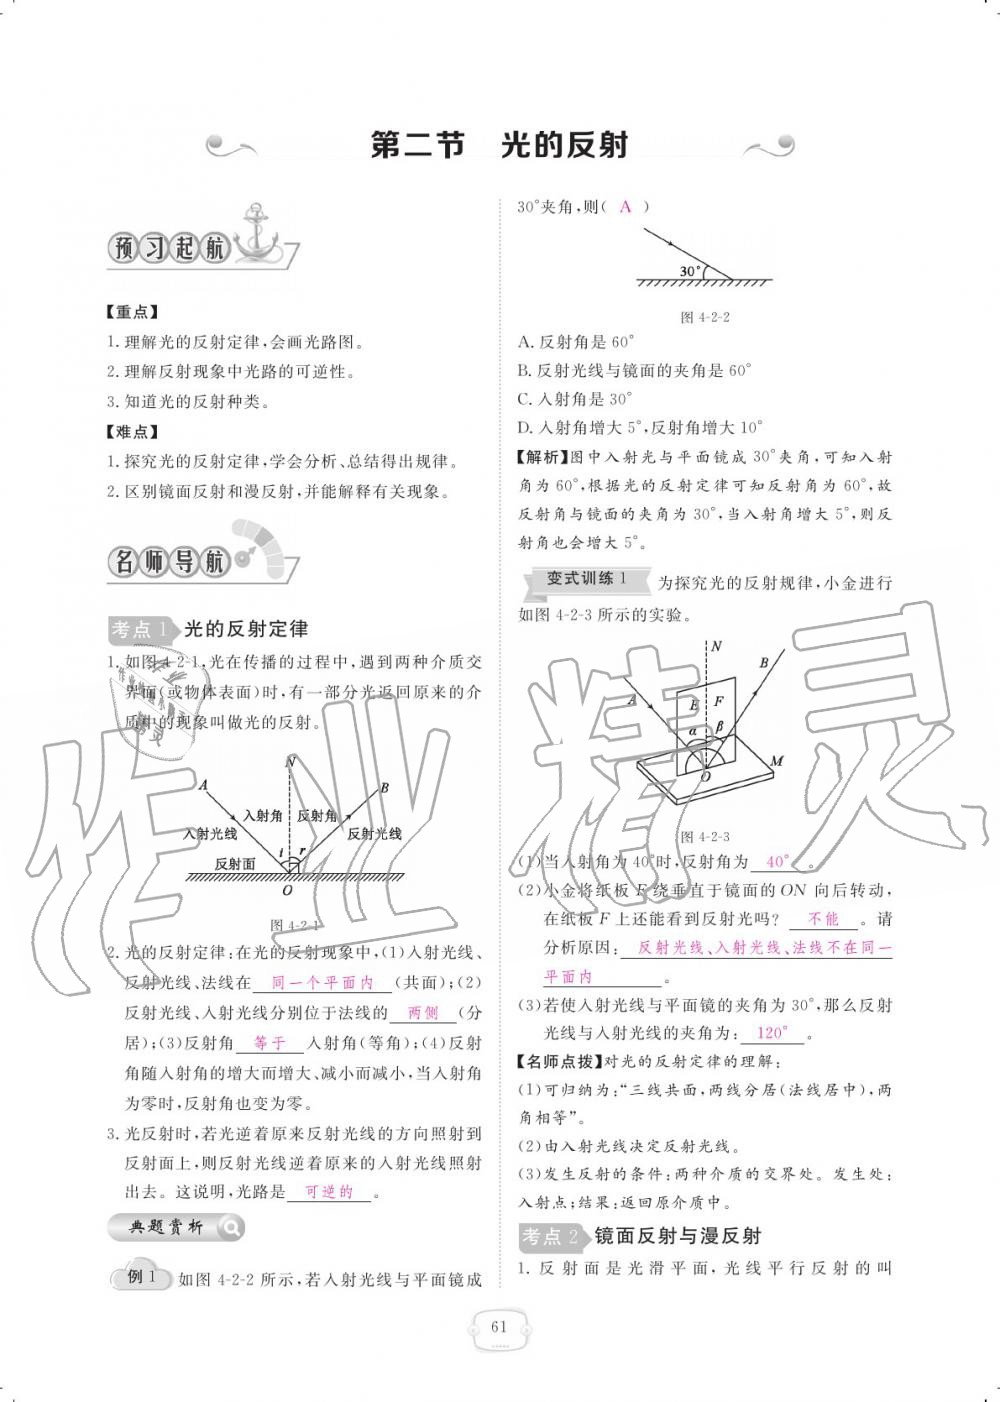 第二节 光的反射
预习起航
【重点】
1. 理解光的反射定律,会画光路图。
2. 理解反射现象中光路的可逆性。
3. 知道光的反射种类。
【难点】
1. 探究光的反射定律,学会分析、总结得出规律。
2. 区别镜面反射和漫反射,并能解释有关现象。
名师导航
考点 1 光的反射定律
1. 如图 4-2-1,光在传播的过程中,遇到两种介质交
界面(或物体表面)时,有一部分光返回原来的介
质中的现象叫做光的反射。
N
A
B
入射角 反射角
入射光线 反射光线
i r
反射面
O
图 4-2-1
2. 光的反射定律:在光的反射现象中,(1)入射光线、
反射光线、法线在 同一个平面内 (共面);(2)
反射光线、入射光线分别位于法线的 两侧 (分
居);(3)反射角 等于 入射角(等角);(4)反射
角随入射角的增大而增大、减小而减小,当入射角
为零时,反射角也变为零。
3. 光反射时,若光逆着原来反射光线的方向照射到
反射面上,则反射光线逆着原来的入射光线照射
出去。这说明,光路是 可逆的 。
典题赏析
例 1 如图 4-2-2 所示,若入射光线与平面镜成
30°夹角,则( A )
30°
图 4-2-2
A. 反射角是 60°
B. 反射光线与镜面的夹角是 60°
C. 入射角是 30°
D. 入射角增大 5°,反射角增大 10°
【解析】图中入射光与平面镜成 30°夹角,可知入射
角为 60°,根据光的反射定律可知反射角为 60°,故
反射角与镜面的夹角为 30°,当入射角增大 5°,则反
射角也会增大 5°。
变式训练 1 为探究光的反射规律,小金进行
如图 4-2-3 所示的实验。
N
B
A
E F
α β
M
O
图 4-2-3
(1)当入射角为 40°时,反射角为 40° 。
(2)小金将纸板 F 绕垂直于镜面的 ON 向后转动,
在纸板 F 上还能看到反射光吗? 不能 。请
分析原因: 反射光线、入射光线、法线不在同一
平面内 。
(3)若使入射光线与平面镜的夹角为 30°,那么反射
光线与入射光线的夹角为: 120° 。
【名师点拨】对光的反射定律的理解:
(1)可归纳为:“三线共面,两线分居(法线居中),两
角相等”。
(2)由入射光线决定反射光线。
(3)发生反射的条件:两种介质的交界处。发生处:
入射点;结果:返回原介质中。
考点 2 镜面反射与漫反射
1. 反射面是光滑平面,光线平行反射的叫
61
作业精灵